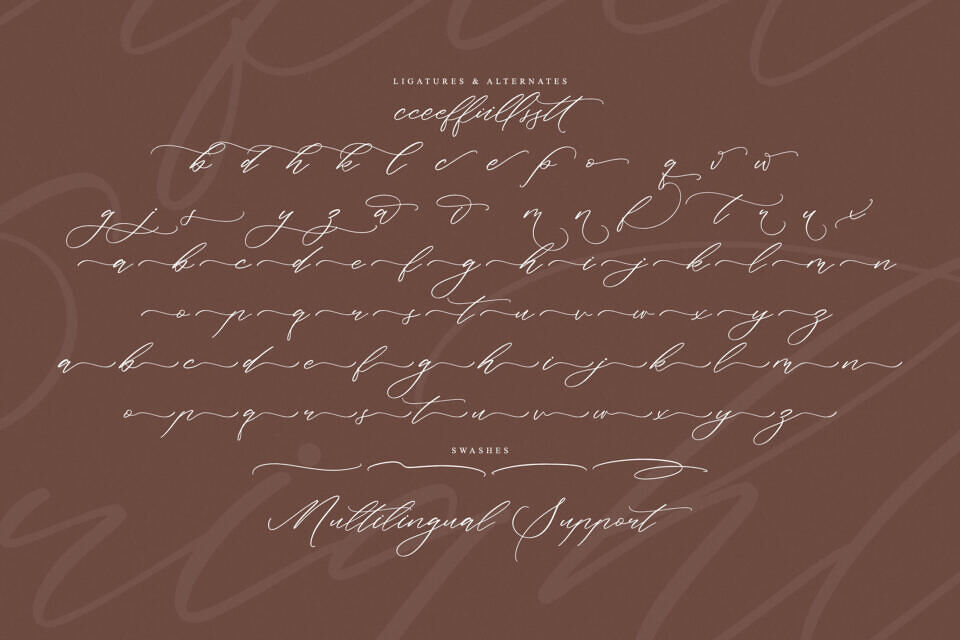 LIGATURES & ALTERNATES
cceeffiillsstt
b d h k l c e p o q v w
g j s y z a d m n p t r u x
a b c d e f g h i j k l m n
o p q r s t u v w x y z
a b c d e f g h i j k l m n
o p q r s t u v w x y z
SWASHES
Multilingual Support